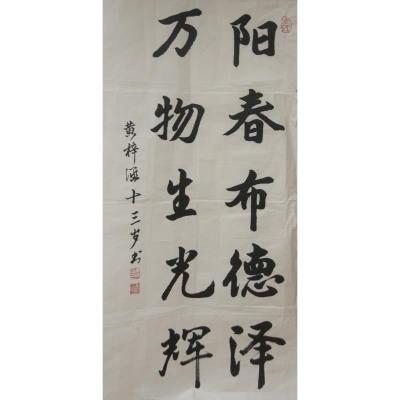 阳春布德泽
万物生光辉
黄梓涵十三岁书